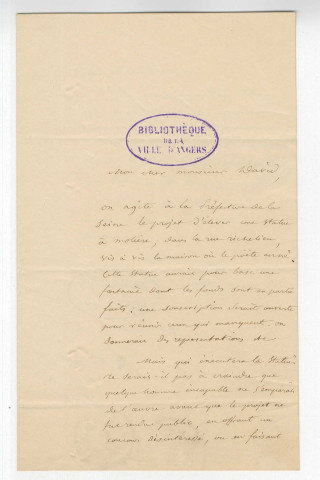 BIBLIOTHÈQUE
DE LA
VILLE D'ANGERS
Mon cher monsieur David,
on agite à la Préfecture de la
Seine le projet d'élever une statue
à molière, dans la rue richelieu,
vis à vis la maison où le poète
Cette statue aurait pour base une
fontaine dont les fonds sont en partie
faits; une souscription serait ouverte
pour réunir ceux qui manquent, on
donnerait des représentations &c
Mais qui exécutera la statue?
ne serait-il pas à craindre que
quelque homme incapable ne s'emparât
de l'œuvre avant que le projet ne
fut rendu public, en offrant un
concours désintéressé, ou en faisant